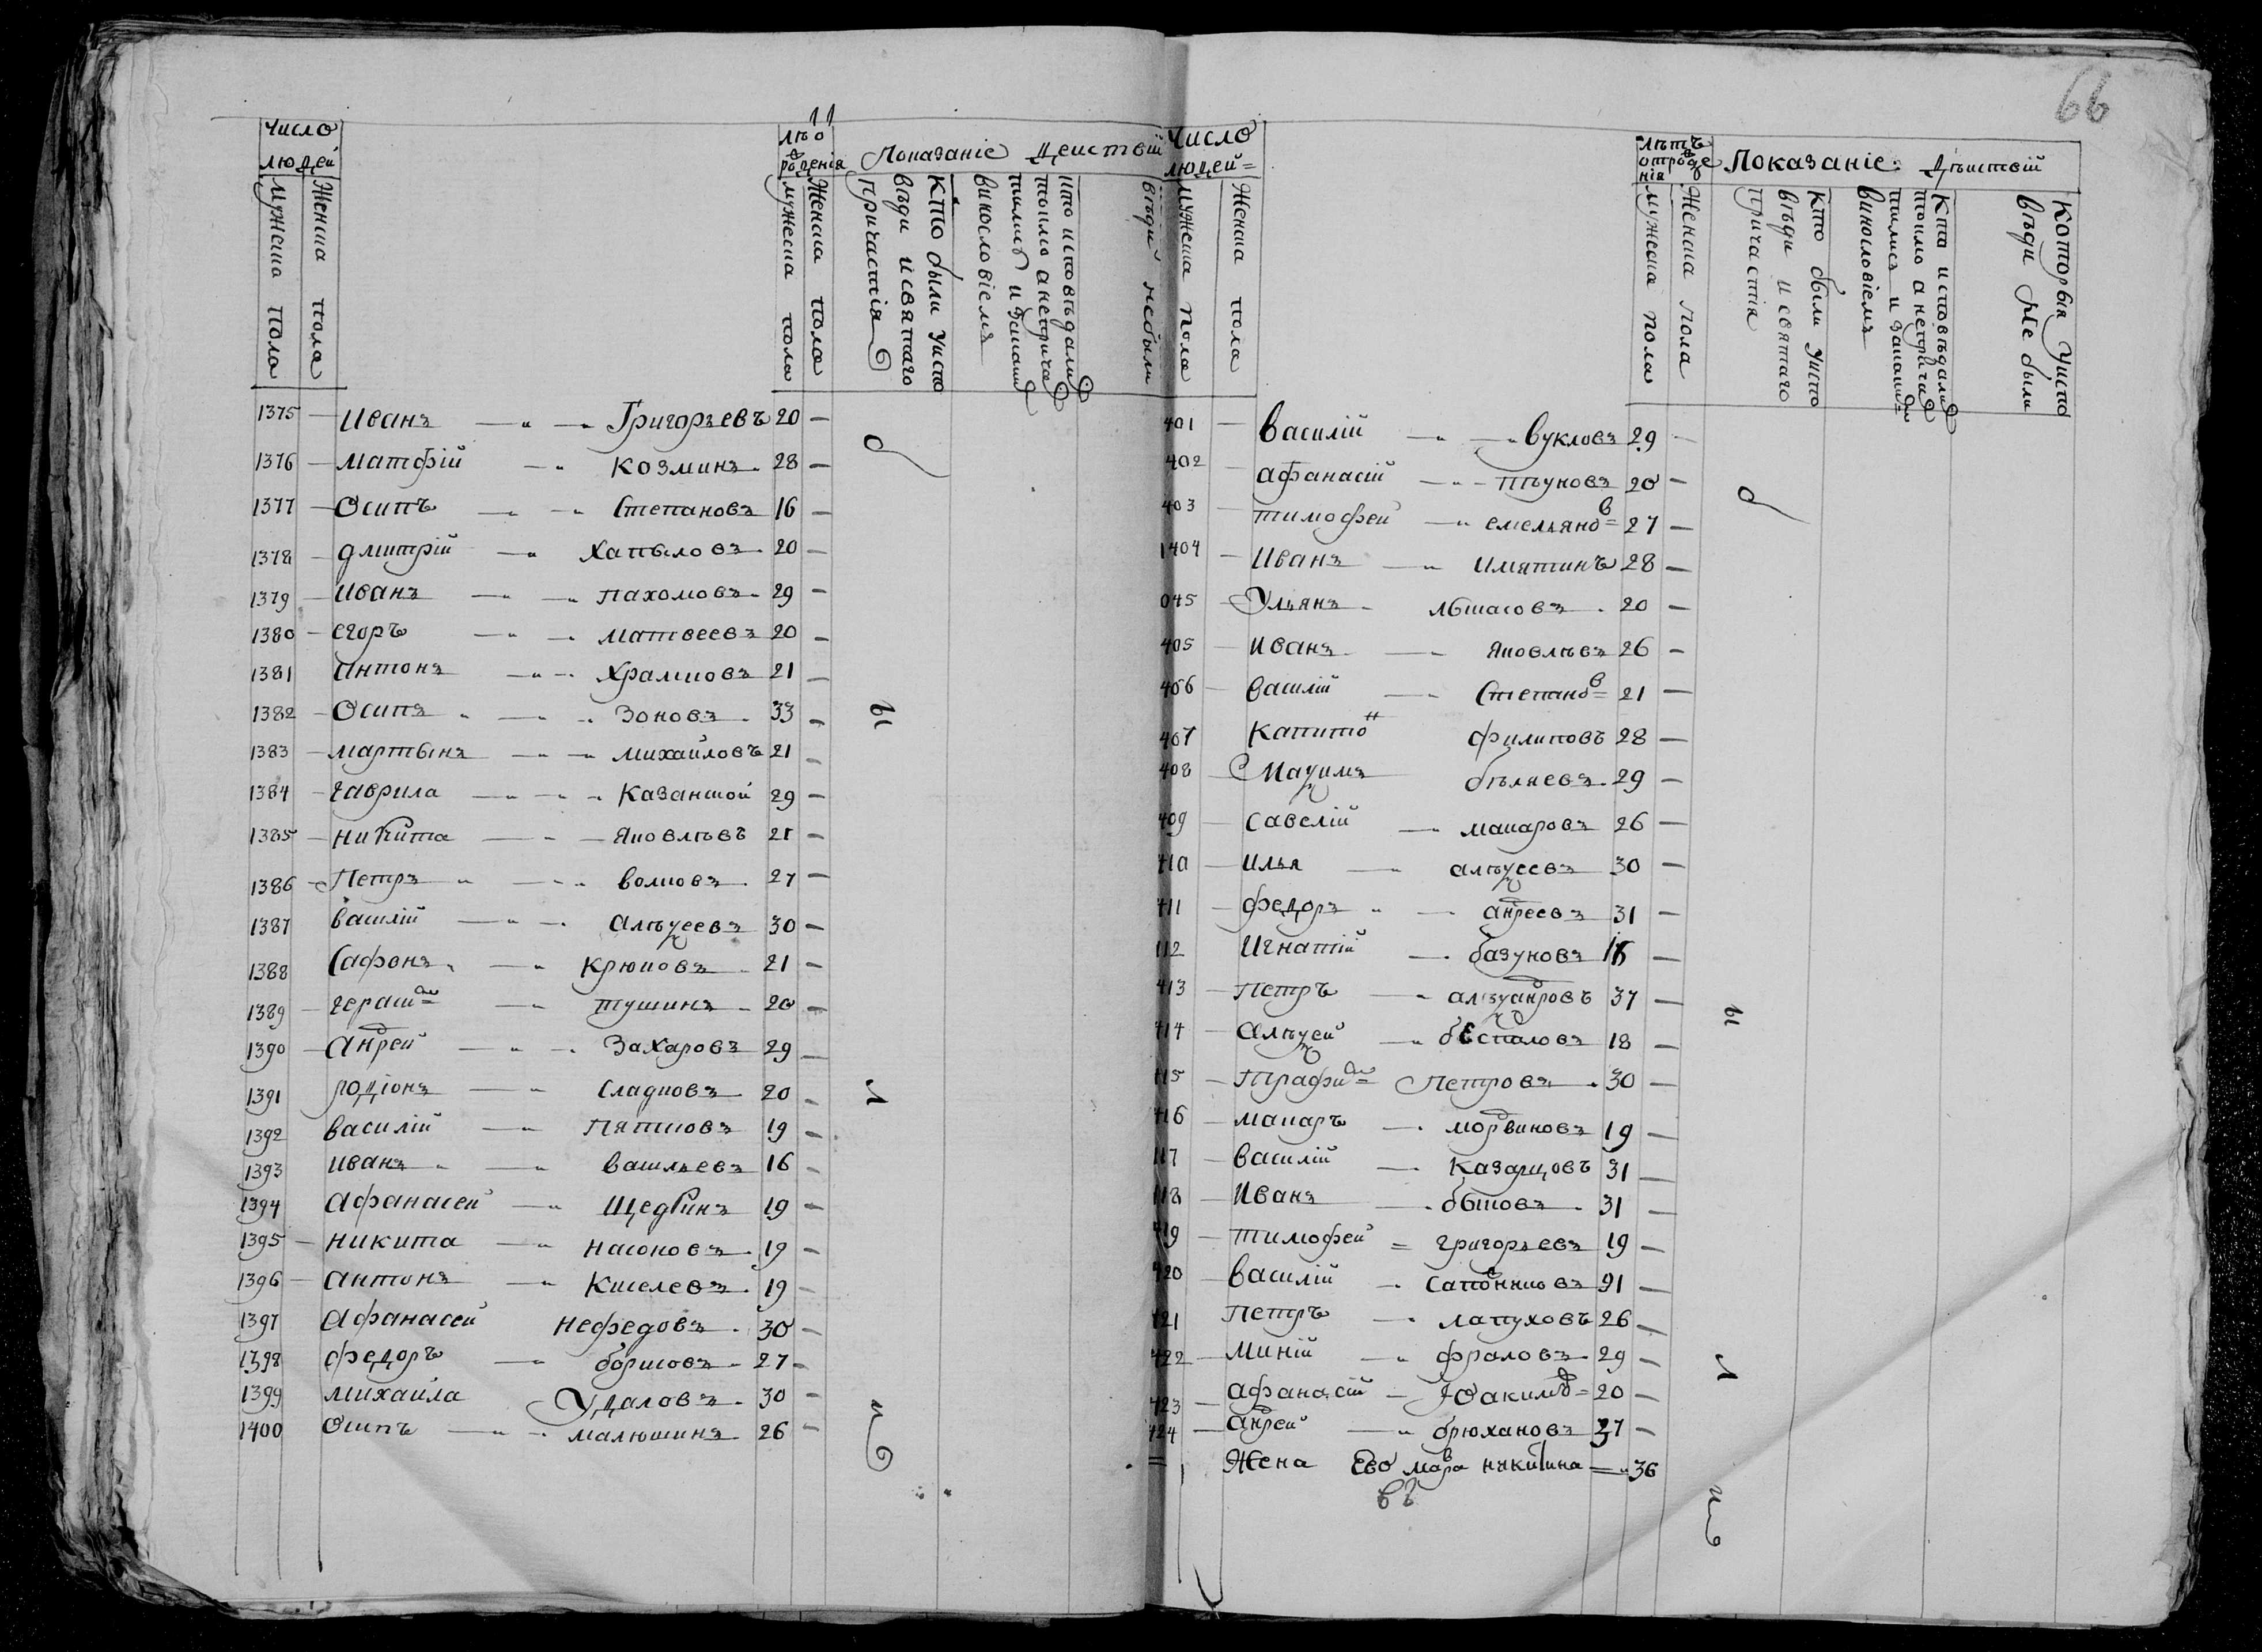 66
Число людей
Мужеска пола
Женска пола
Мужеска пола
Женска пола
Показаніе Действій
Кто были Уиспо
вѣди и святаго
причастія
Кто исповѣдали
токмо а непричас
вѣди небыли
1375 — Иванъ — Григорьевъ 20 —
1376 — Матфій — Козминъ 28 —
1377 — Осипъ — Степановъ 16 —
1378 — Дмитрій — Хапыловъ 20 —
1379 — Иванъ — Пахомовъ 29 —
1380 — Егоръ — Матвеевъ 20 —
1381 Антонъ — Храмковъ 21 —
1382 — Осипъ — Зоновъ 33 —
1383 — Мартынъ — Михайловъ 21 —
1384 — Гаврила — Казанской 29 —
1385 — Никита — Яковлѣвъ 21 —
1386 — Петръ — Волковъ 27 —
1387 Василій — Алѣѯеевъ 30 —
1388 Сафонъ — Крюковъ 21 —
1389 — Герасим — Тушинъ 20 —
1390 — Анрей — Захаровъ 29 —
1391 Родіонъ — Сладковъ 20 —
1392 Василій — Пятковъ 19 —
1393 Иванъ — Васильевъ 16 —
1394 Афанасей — Щедринъ 19 —
1395 — Никита — Насоновъ 19 —
1396 — Антонъ — Киселевъ 19 —
1397 Афанасей Нефедовъ 30 —
1398 Федоръ — Борисовъ 27 —
1399 Михаила Удаловъ 30 —
1400 Осипъ — Малюшинъ 26 —
б
ы
л
и
Число людей
Мужеска пола
Женска пола
Лѣтъ отрожденія
Мужеска пола
Женска пола
Показаніе Дѣиствій
Кто были Уиспо
вѣди и святаго
причастія
Кто исповѣдали
токмо а непричас
Которыя Уиспо
вѣди Не были
401 — Василій — Вукловъ 29 —
402 Афанасій — Пѣуновъ 20 —
403 Тимофей — Емельяновъ 27 —
1404 — Иванъ — Имятинъ 28 —
045 — Ульянъ 20 —
405 — Иванъ — Яковлѣвъ 26 —
406 — Василій — Степановъ 21 —
407 Капитон Филиповъ 28 —
408 — Маѯимъ Бѣляевъ 29 —
409 — Савелій — Макаровъ 26 —
410 — Илья — Алѣѯеевъ 30 —
411 — Федоръ — Анреевъ 31 —
412 Игнатій — Базуновъ —
413 — Петръ — Алеѯандровъ 37 —
414 — Алѣѯей — Беспаловъ 18 —
415 — Трафим Петровъ 30 —
416 — Макаръ — Мордвиновъ 19 —
417 — Василій — Казанцовъ 31 —
418 — Иванъ — Быковъ 31 —
419 — Тимофей = Григорьевъ 19 —
420 — Василій — Сапожниковъ 91 —
421 Петръ — Лапуховъ 26 —
422 — Миній — Фраловъ 29 —
423 — Афанасій — Иоакимов = 20 —
424 — Анрей — Брюхановъ 37 —
Жена Ево Мавра Никитина = 36
б
ы
л
и